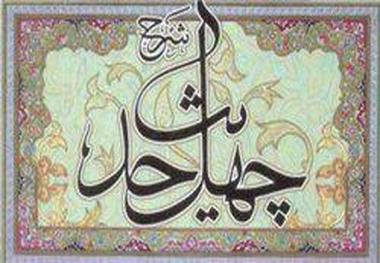 شرح
چهل حدیث